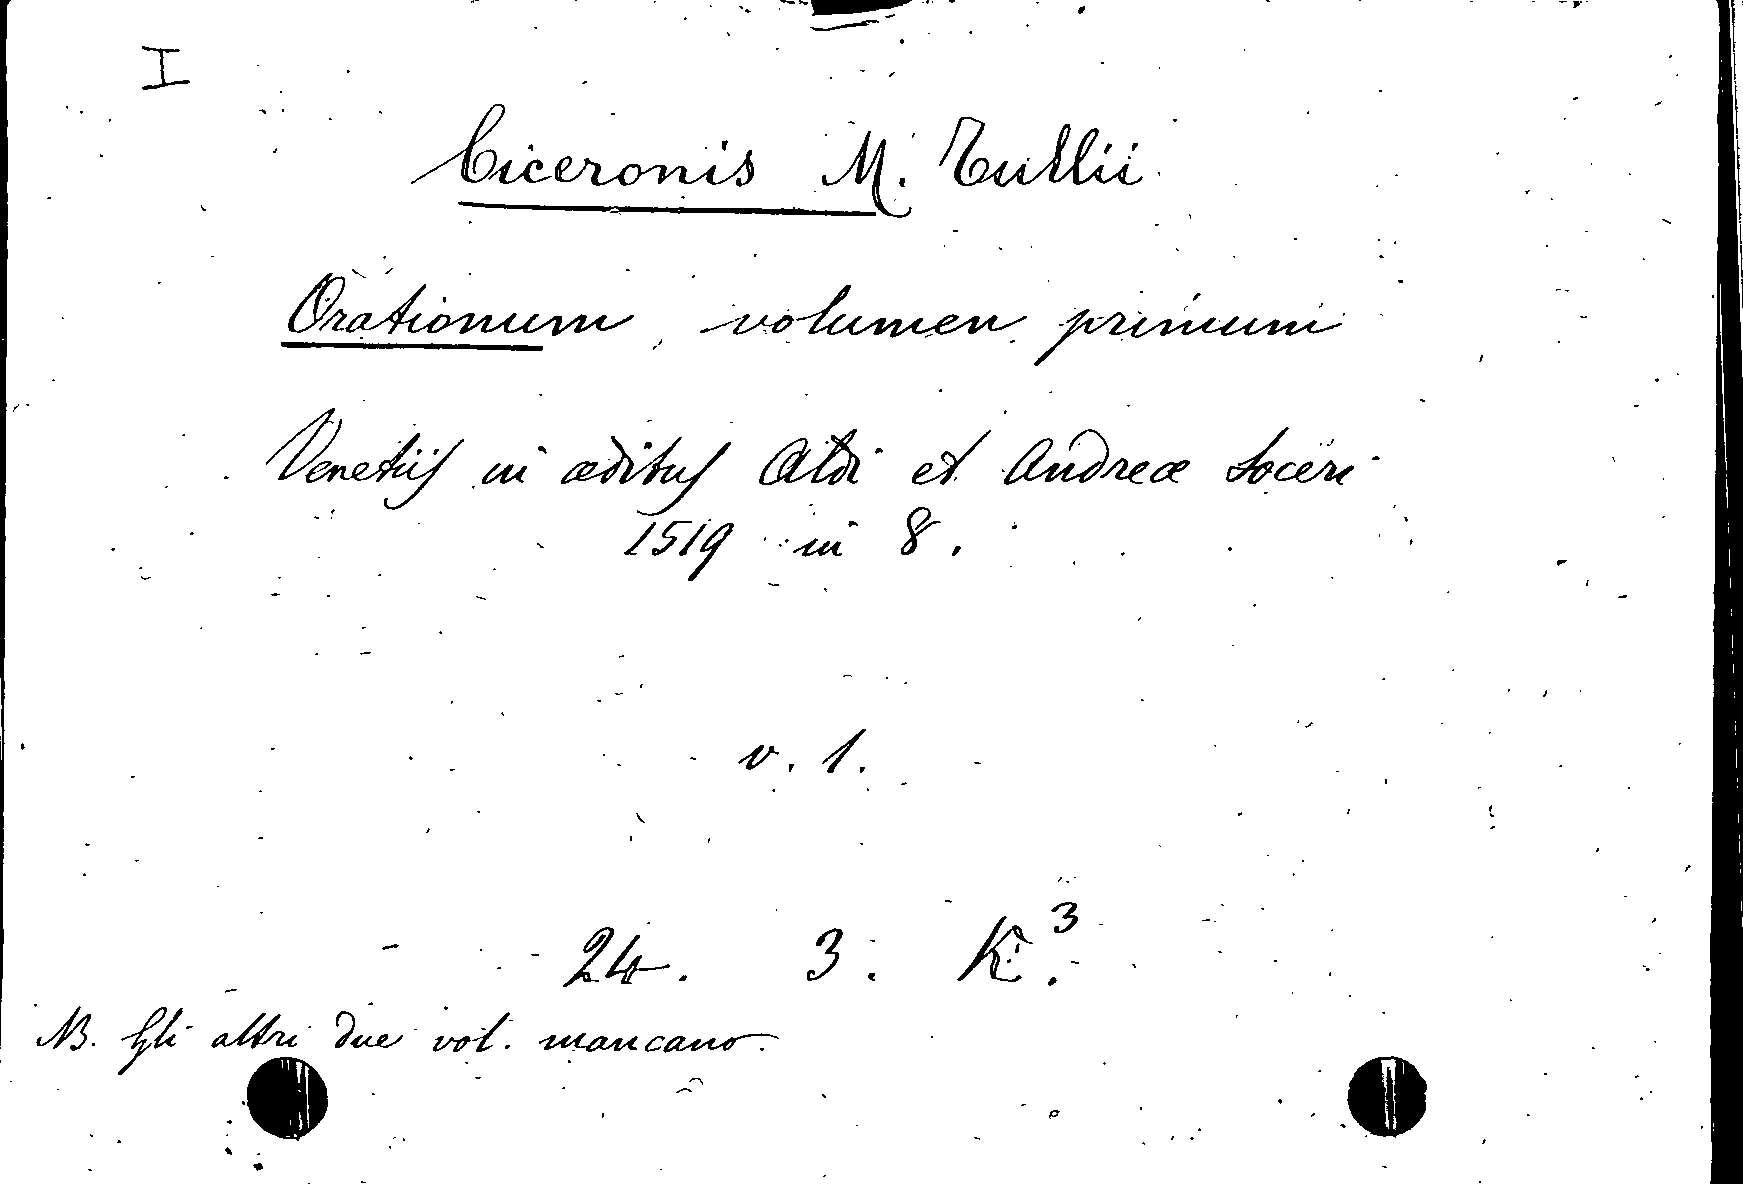 I
Ciceronis M. Tullii
Orationum volumen primum
Venetiis in æditus Aldi et Andreæ Soceri
1519 in 8.
v. 1.
24. 3. K.³
NB. Gli altri due vol. mancano.